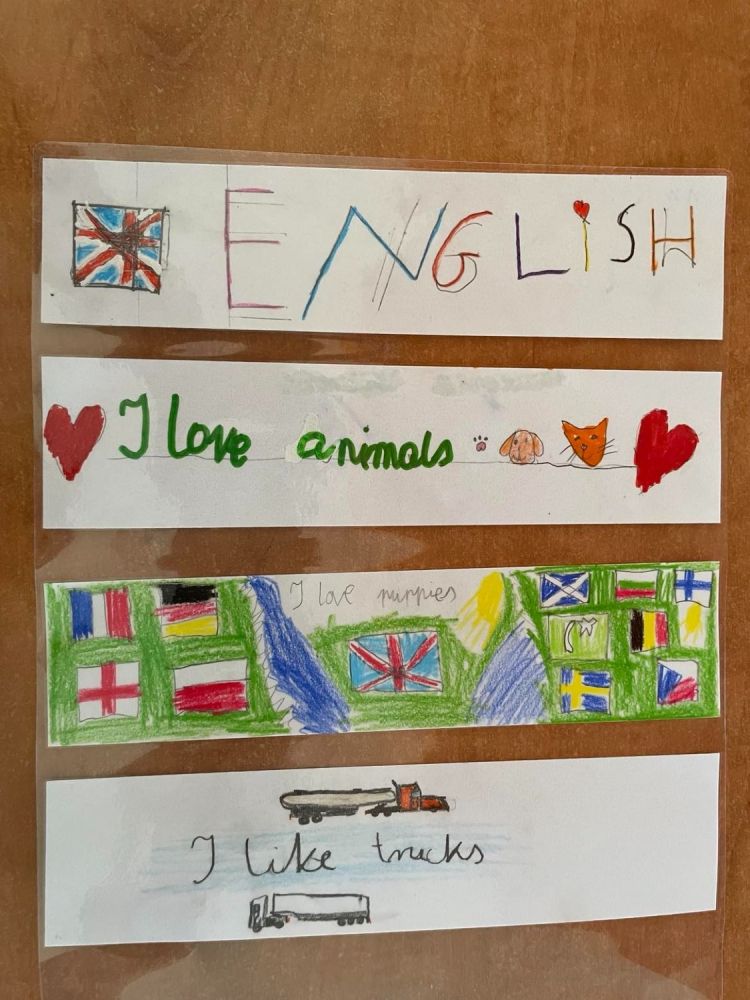 ENGLiSH
I love animals
I love puppies
I like trucks